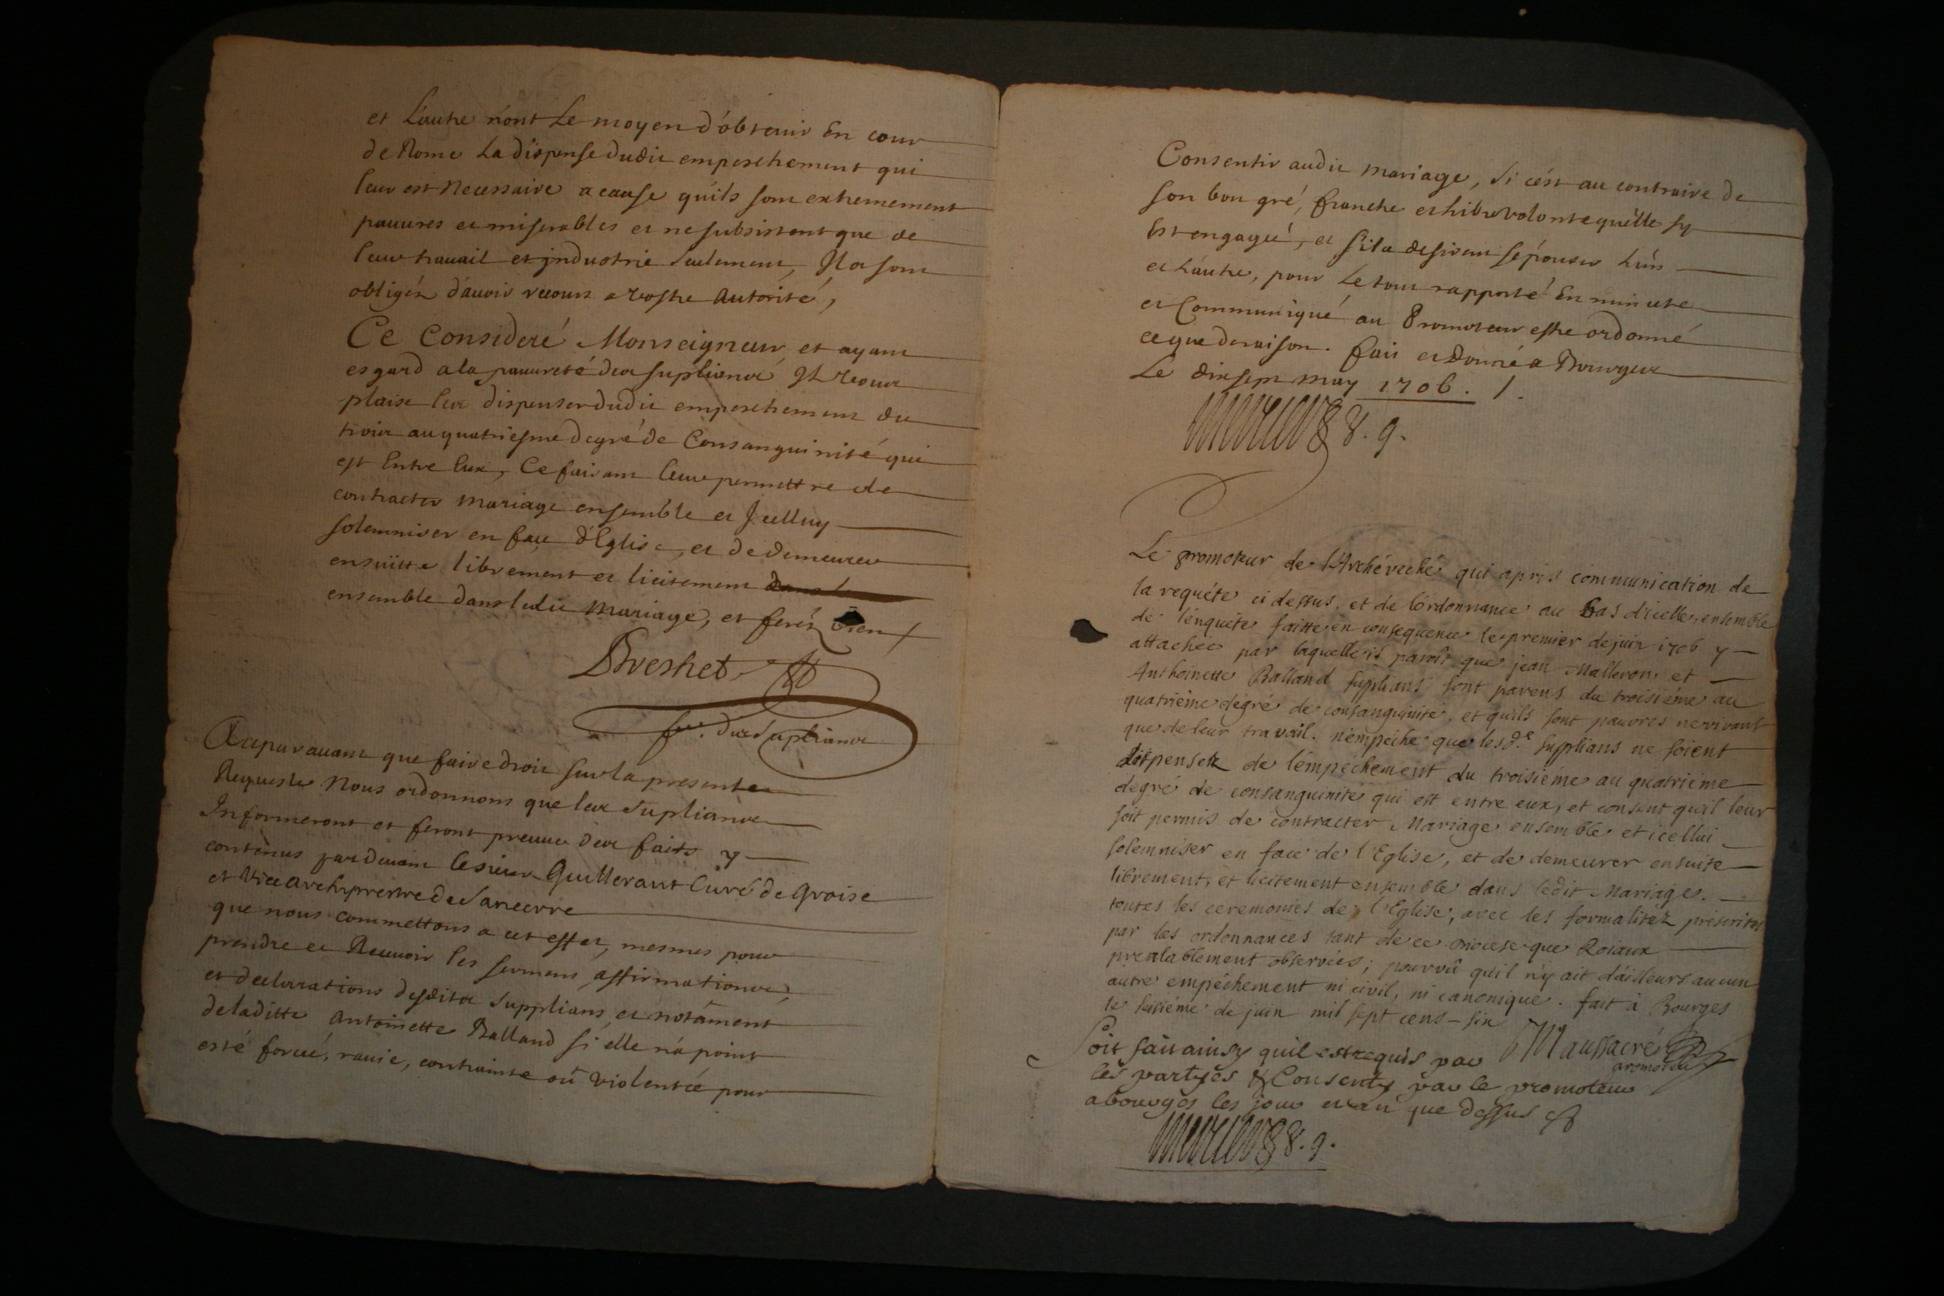 et l'autre n'ont le moyen d'obtenir En cour
de Rome La dispense dudit empeschement qui
leur est Necessaire a cause qu'ils sont extremement
pauures et miserables et ne subsistent que de
leur trauail et jndustrie seulement, Ils sont
obligés d'auoir recours a vostre Autorité,
Ce Consideré Monseigneur, et ayant
esgard a la pauureté des supliants Il vous
plaise les dispenser dudit empeschement du
trois au quatriesme degré de Consanguinité qui
est Entre Eux, Ce faisant leur permettre de
contracter mariage ensemble et Jcelluy
solemniser en face d'Eglise, et de demeurer
ensuitte librement et licitement
ensemble dans ledit mariage, et ferés bien
des Supliants
Auparauant que faire droit sur la presente
Requeste Nous ordonnons que les Supliants
Informeront et feront preuue des faits y
contenus pardeuant le sieur Guillerault Curé de Groise
et Vice archiprestre de Sancerre
que nous commettons a cet effet, mesmes pour
prendre et Receuoir les sermens, affirmations,
et declarations desdits Supplians et notament
de laditte Antoinette Balland si elle n'a point
esté forcée, rauie, contrainte ou violentée pour
Consentir audit mariage, si c'est au contraire de
son bon gré, franche et libre volonté qu'elle sy
Est engagée, et s'ils desirent s'épouser l'un
et L'autre, pour Le tout rapporté En minute
et Communiqué au Promoteur estre ordonné
ce que de raison. fait et Donné a Bourges
Le dix sept may 1706.
8. g.
Le promoteur de l'Archévéché qui apres communication de
la requéte ci dessus, et de l'ordonnance au bas d'icelle, ensemble
de l'enquéte faitte en consequence le premier de juin 1706 y
attachée par laquelle il paroit que jean Malleron et
Anthoinette Balland supplians sont parens du troisiéme au
quatriéme degré de consanguinité, et qu'ils sont pauvres ne vivant
que de leur travail. n'empéche que lesd. supplians ne soient
dispensez de l'empéchement du troisiéme au quatriéme
degré de consanguinité qui est entre eux, et consent qu'il leur
soit permis de contracter Mariage ensemble et icellui
solemniser en face de l'Eglise, et de demeurer ensuite
librement, et licitement ensemble dans ledit Mariage.
toutes les ceremonies de l'Eglise, avec les formalitez préscrites
par les ordonnances tant de ce diocese que Roiaux
prealablement observées; pourvû qu'il n'y ait d'ailleurs aucun
autre empéchement ni civil, ni canonique. fait à Bourges
le de juin mil sept cens six
Maussacré
promoteur
Soit fait ainsy quil est requis par
les partyes & Consenty par le promoteur
a bourges les jour et an que dessus
8. g.